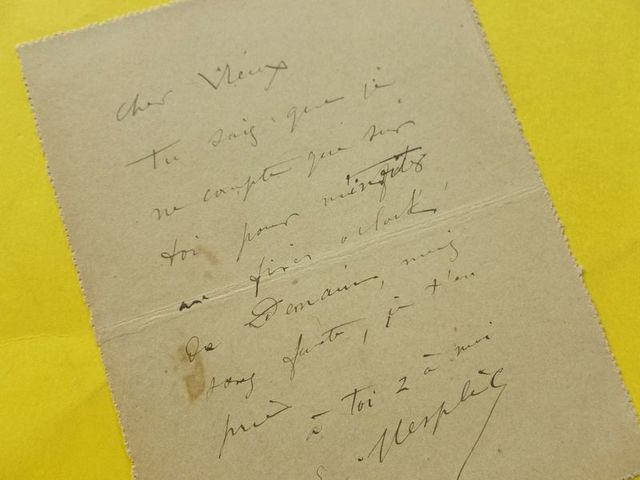 Cher Vieux
Tu sais que je
ne compte que sur
toi pour
au five o'clock,
de Demain, mais
sans faute, je t'en
prie
à toi 2 à moi
Mesplès